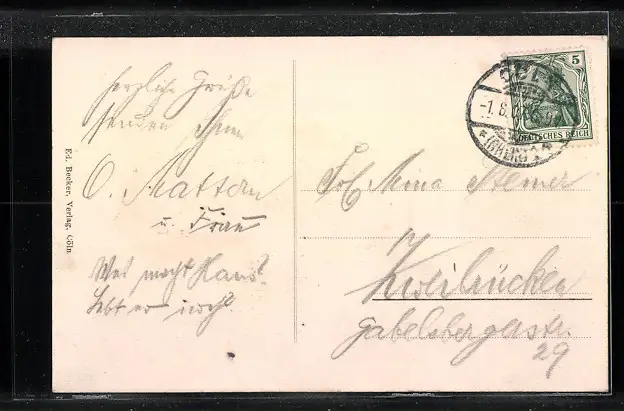 Herzliche Grüße
senden Ihnen
O. Mattern
u. Frau
Was macht Hans?
Lebt er noch?
Ed. Becker, Verlag, Cöln.
5
DEUTSCHES REICH
CÖLN
-1.8.
Frl. Mina
in
Zweibrücken
Gabelsbergerstr.
29